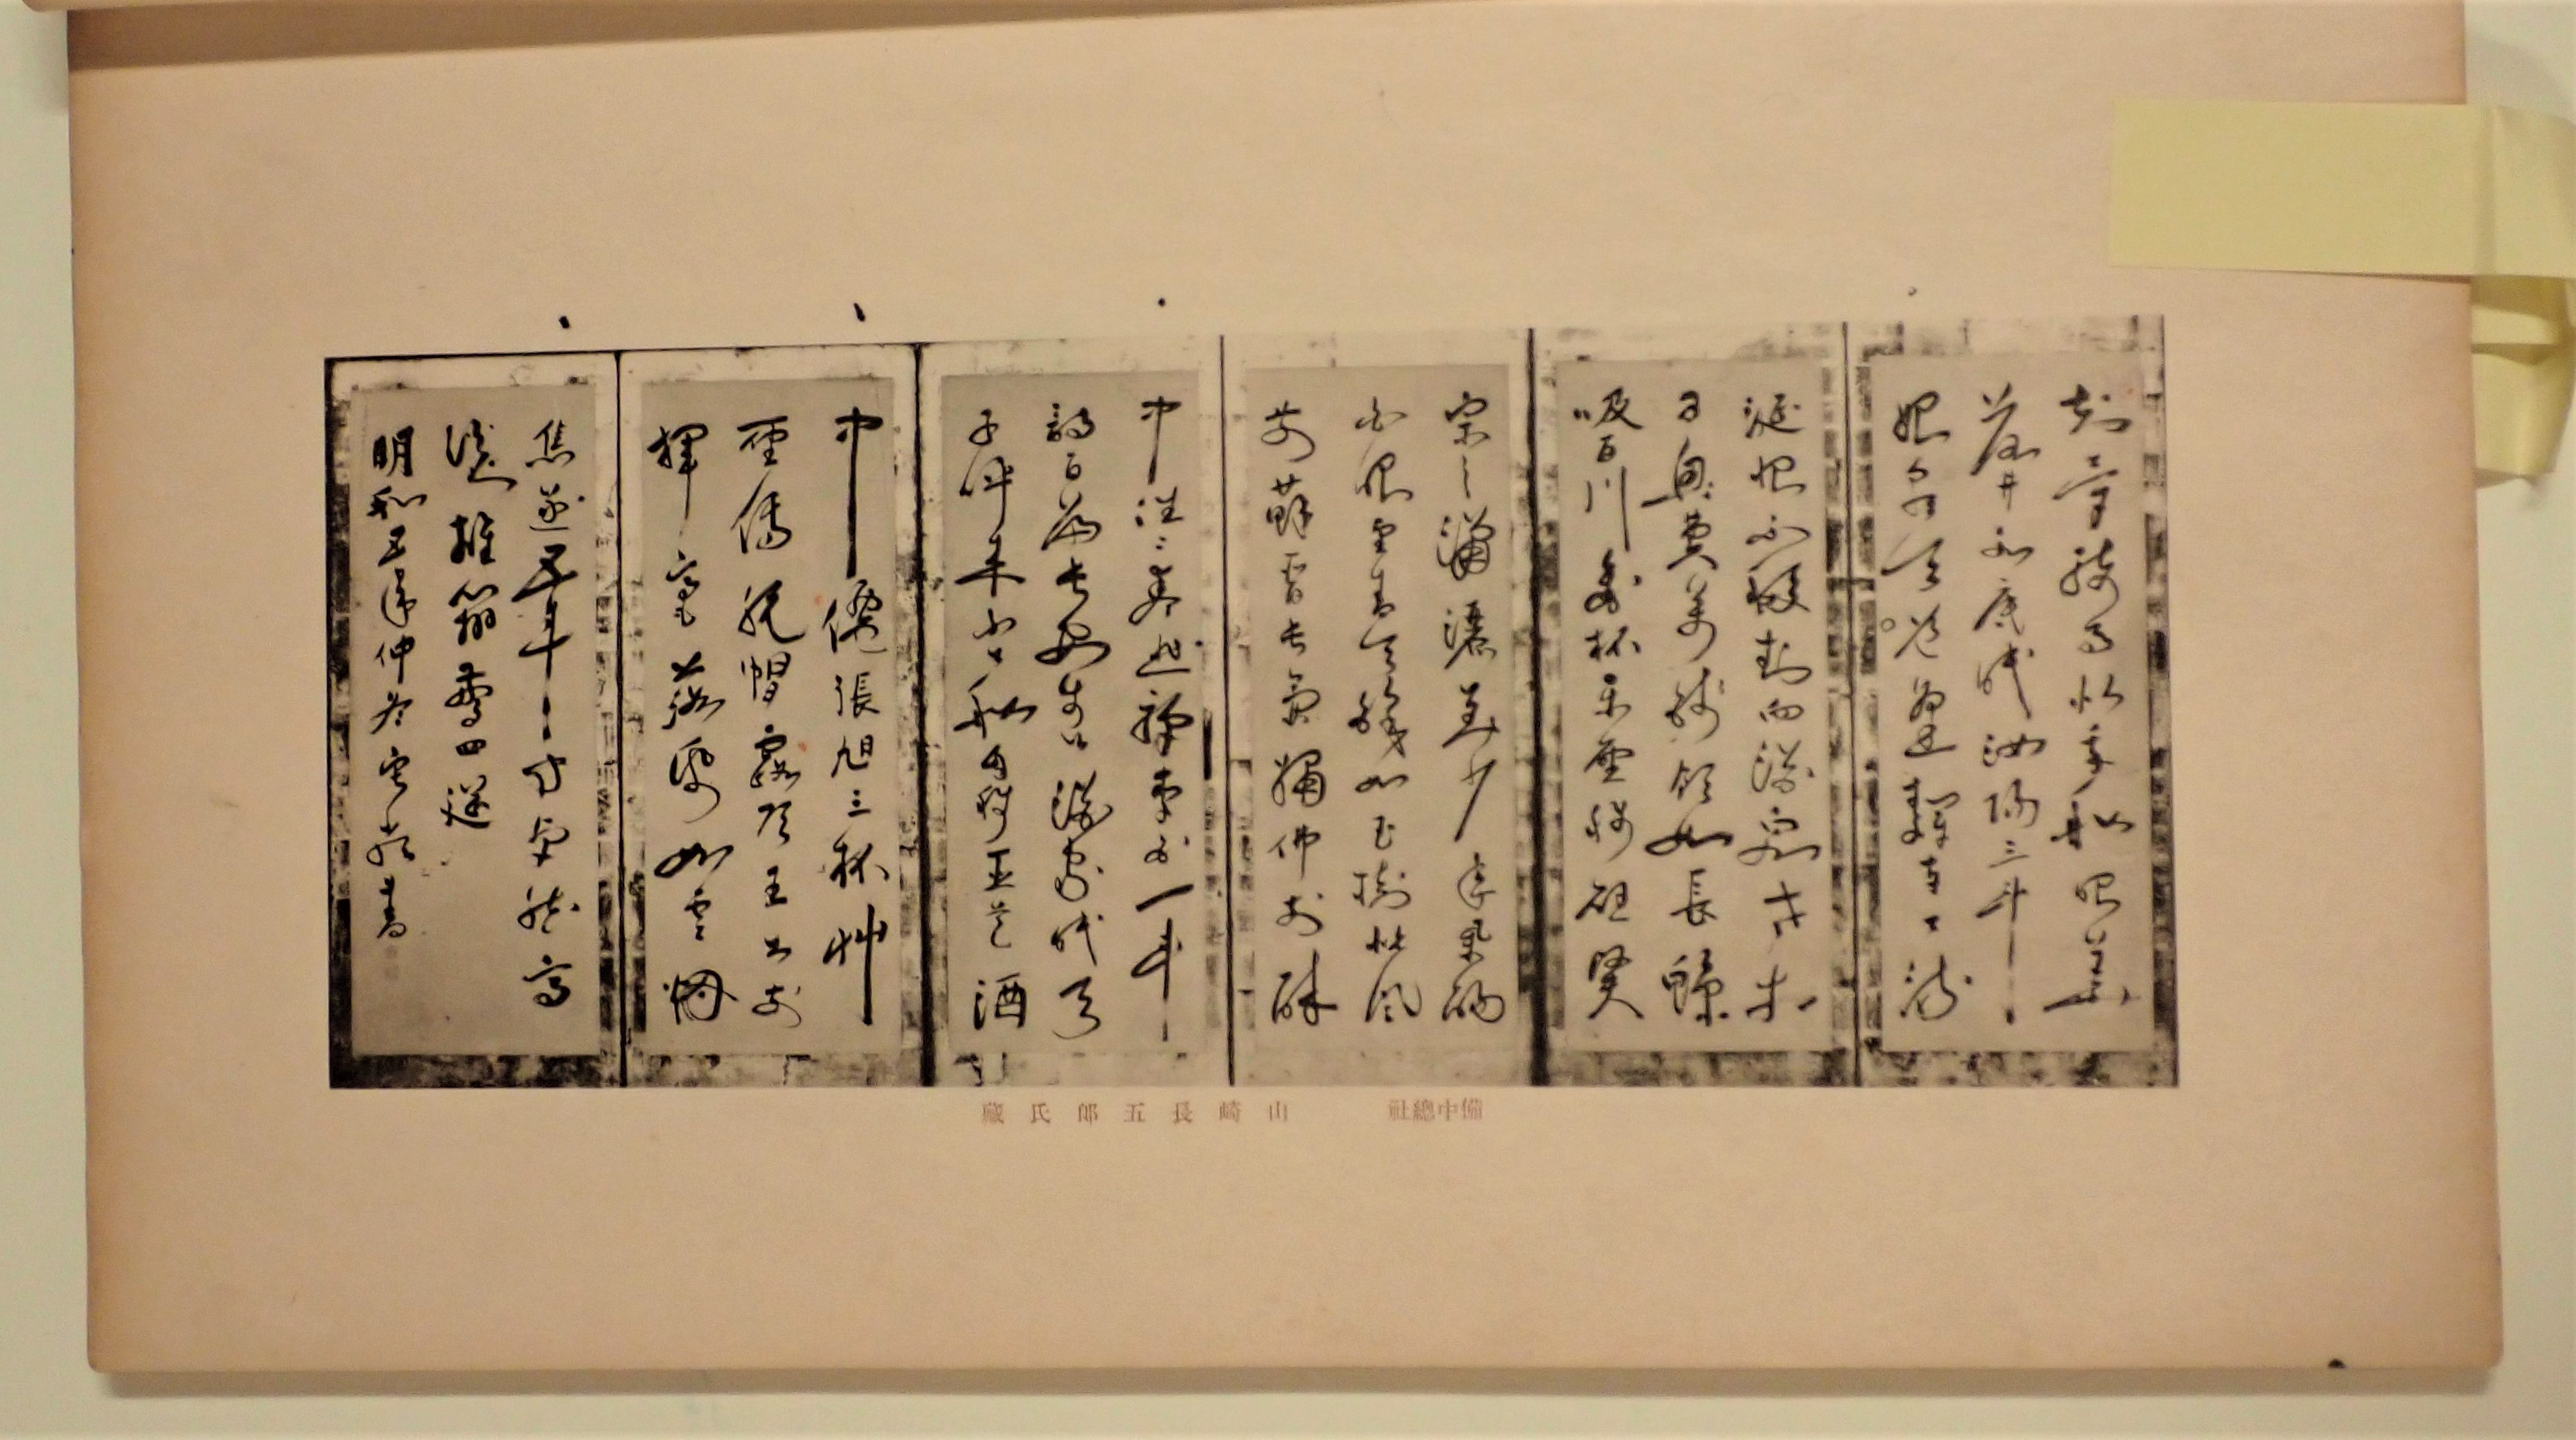 知章騎馬似乘船眼花
落井水底眠汝陽三斗
始朝天道逢麴車口流
涎恨不移封向酒泉左相
日興費萬錢飲如長鯨
吸百川銜杯樂聖稱避賢
宗之瀟灑美少年舉觴
白眼望青天皎如玉樹臨風
前蘇晉長齋繡佛前醉
中往々愛逃禪李白一斗
詩百篇長安市上酒家眠天
子呼來不上船自稱臣是酒
中僊張旭三杯艸
聖傳脫帽露頂王公前
揮毫落紙如雲烟
焦遂五斗方卓然高
談雄辯驚四筵
明和五年仲冬寂嚴書
備中總社　山崎長五郎氏藏